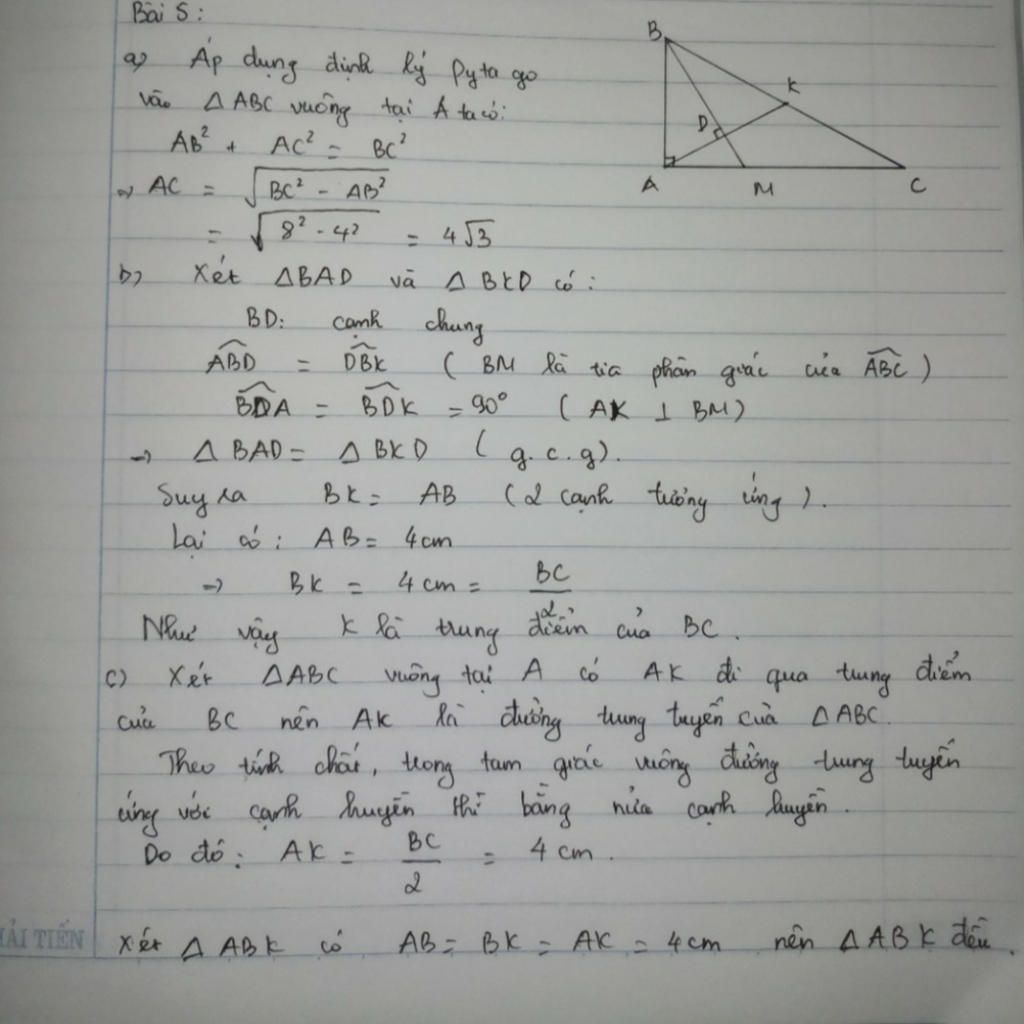 Bài 5:
a) Áp dụng định lý Pytago
vào △ABC vuông tại A ta có:
AB² + AC² = BC²
⇒ AC = √(BC² - AB²)
= √(8² - 4²) = 4√3
b) Xét △BAD và △BKD có:
BD: cạnh chung
\widehat{ABD} = \widehat{DBK} ( BM là tia phân giác của \widehat{ABC} )
\widehat{BDA} = \widehat{BDK} = 90° ( AK ⊥ BM)
⇒ △BAD = △BKD ( g.c.g).
Suy ra BK = AB (2 cạnh tương ứng ).
Lại có: AB = 4cm
⇒ BK = 4cm = BC/2
Như vậy K là trung điểm của BC.
c) Xét △ABC vuông tại A có AK đi qua trung điểm
của BC nên AK là đường trung tuyến của △ABC.
Theo tính chất, trong tam giác vuông đường trung tuyến
ứng với cạnh huyền thì bằng nửa cạnh huyền.
Do đó: AK = BC/2 = 4cm.
Xét △ABK có AB = BK = AK = 4cm nên △ABK đều.
B
K
D
A
M
C
HẢI TIẾN